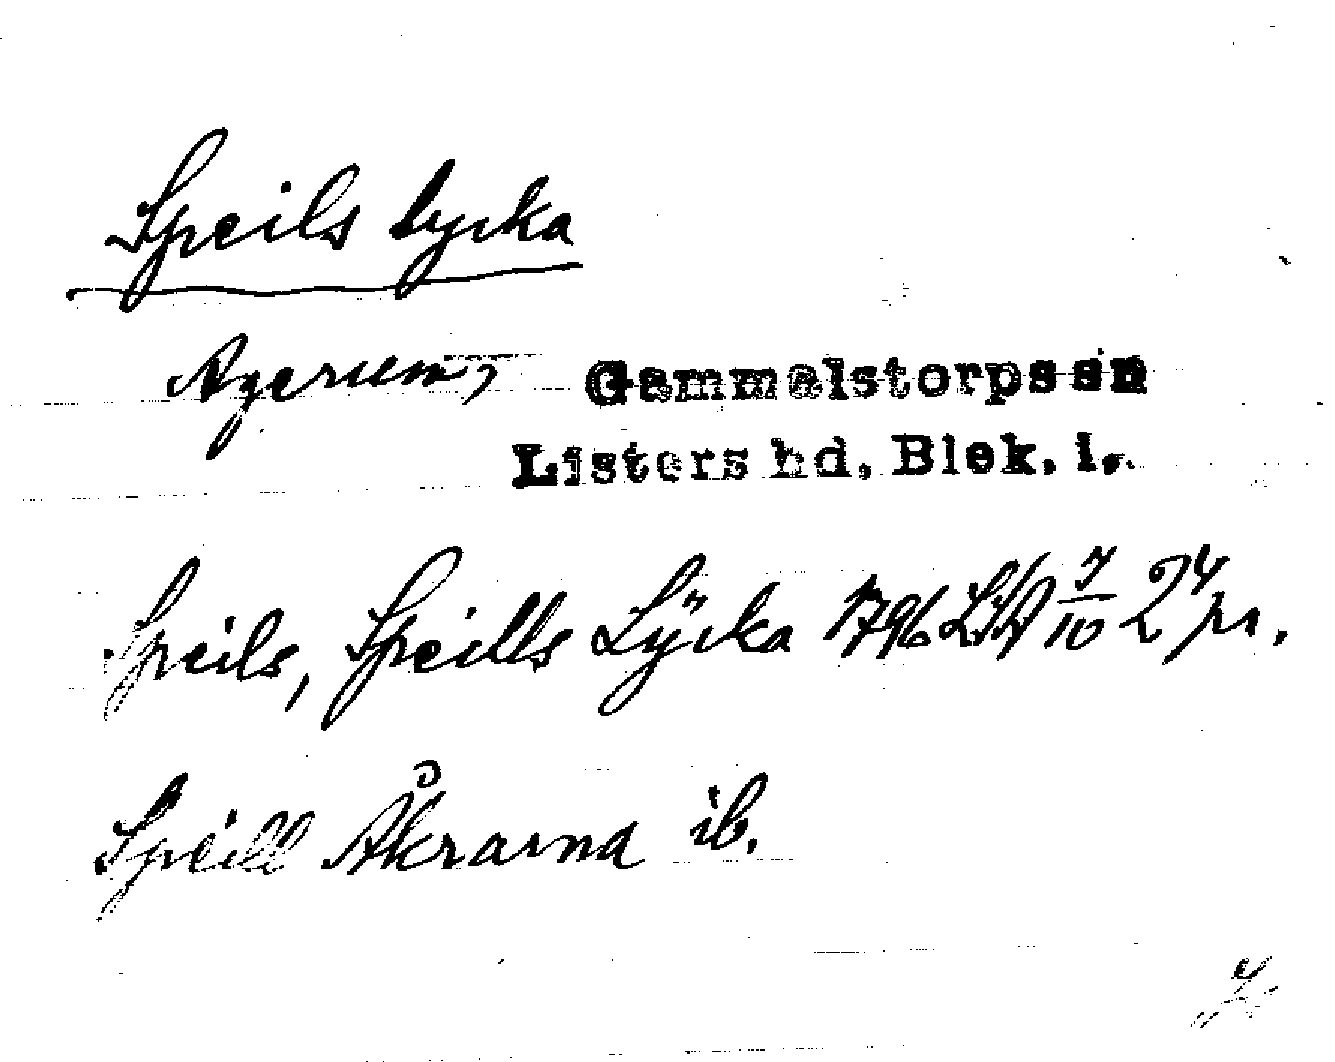 Speils lycka
Agerum, Gammalstorps sn
Listers hd. Blek. l.
Speils, Speills Lÿcka 1796 LSA 7/10 24 pr.
Speill Åkrarna ib.